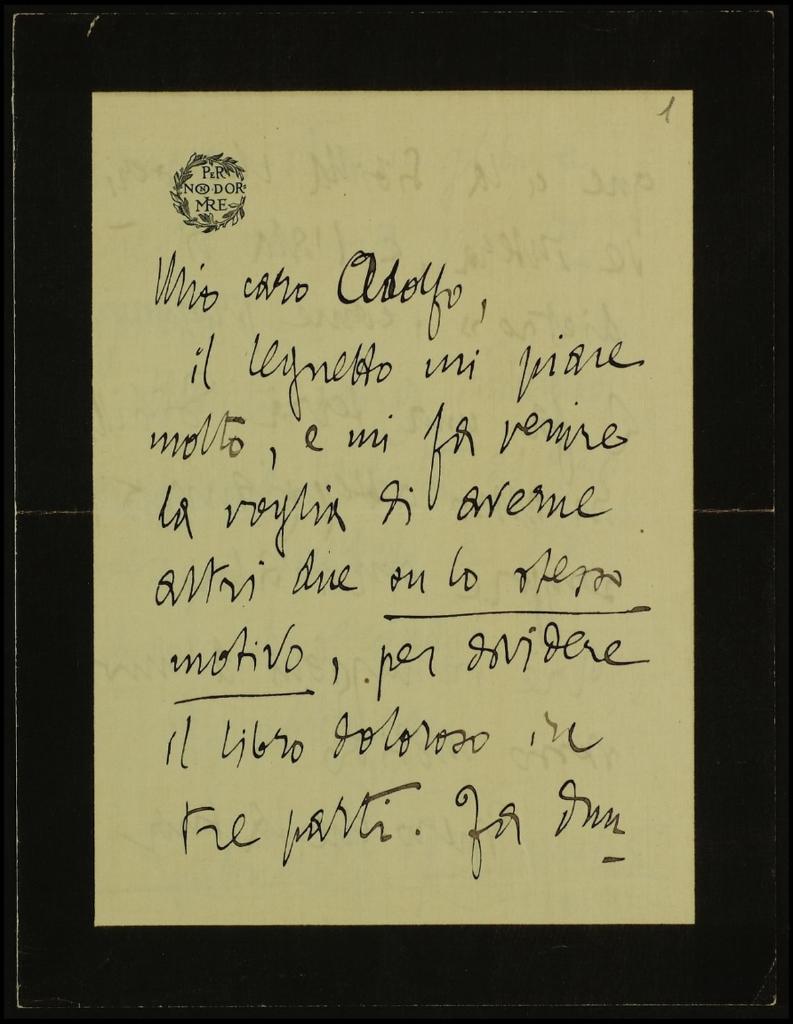 1
PER
NO DOR
MIRE
Mio caro Adolfo,
il legnetto mi piace
molto, e mi fa venire
la voglia di averne
altri due su lo stesso
motivo, per dividere
il libro doloroso in
tre parti. Fa dun